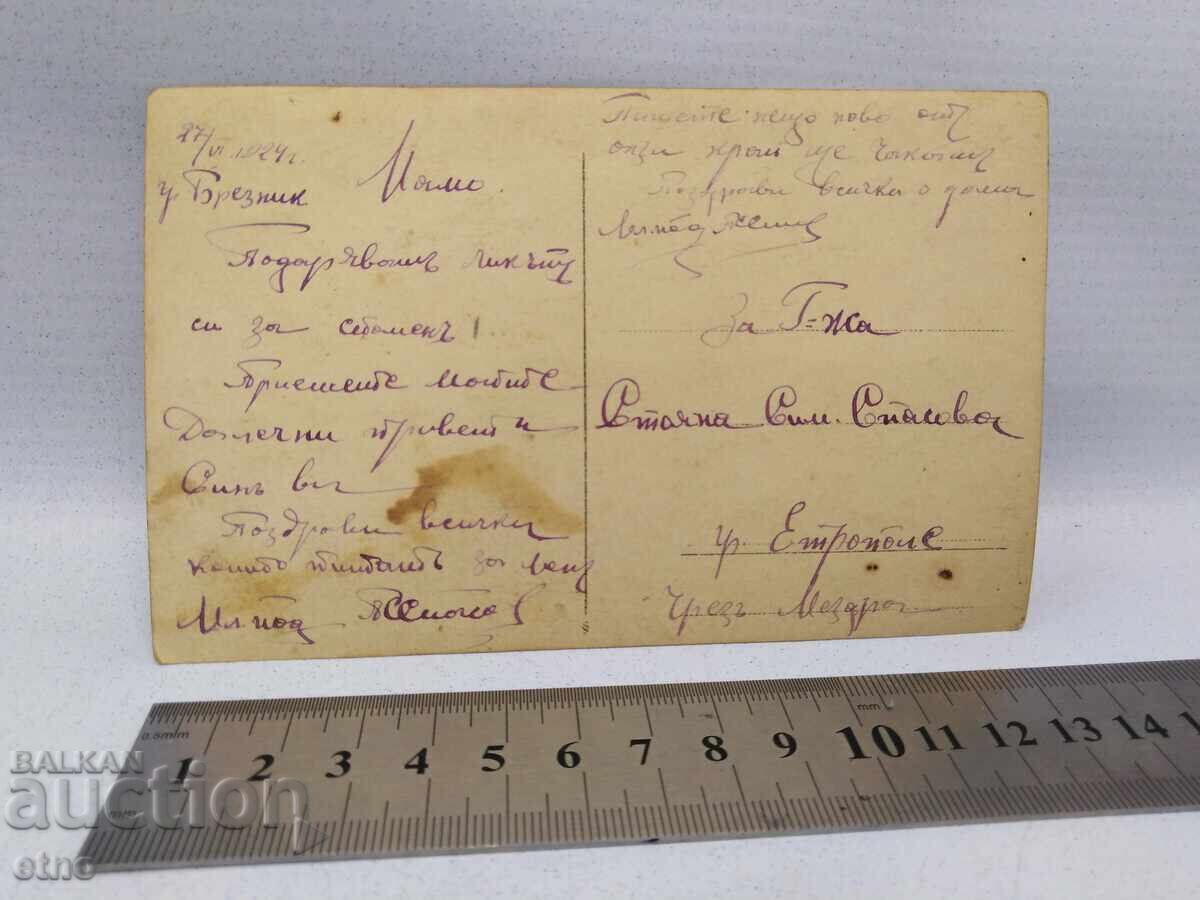 27/VI.1924 г.
гр Брезник
Мамо.
Подарявамъ ликътъ
си за споменъ
Приемете моите
Далечни привети
Синъ ви
Поздрави всички
които питатъ за мен
Мл. под
Пишете нещо ново отъ
онзи край ще чакамъ
Поздрави всички о дома
Мл. под
За Г-жа
Стояна Сим. Спасова
гр. Етрополе
Чрезъ Мездра
0.5m/m
mm
1 2 3 4 5 6 7 8 9 10 11 12 13 14
BALKAN
auction
etno